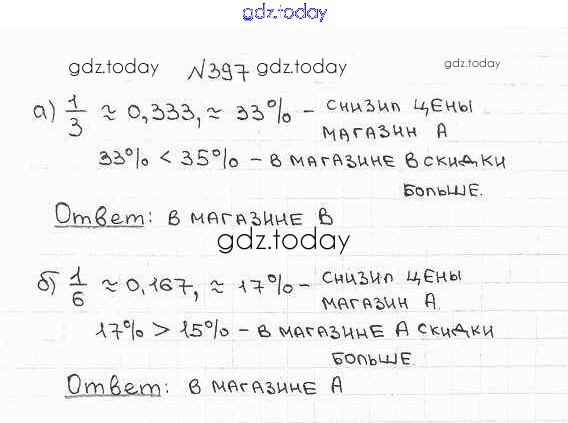 gdz.today
gdz.today №397 gdz.today gdz.today
а) 1/3 ≈ 0,333, ≈ 33% – снизил цены
магазин А
33% < 35% – в магазине В скидки
больше.
Ответ: в магазине В
gdz.today
б) 1/6 ≈ 0,167, ≈ 17% – снизил цены
магазин А.
17% > 15% – в магазине А скидки
больше.
Ответ: в магазине А